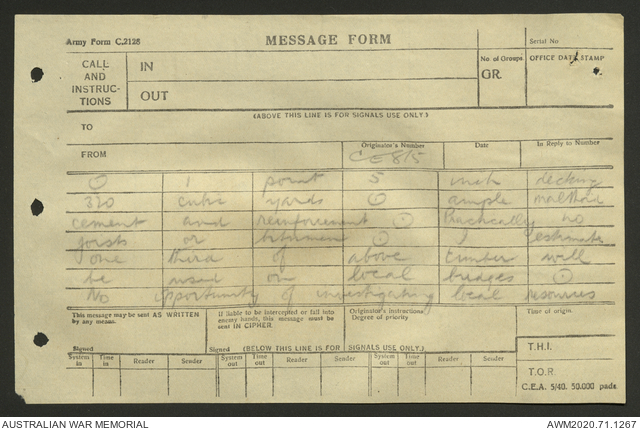 Army Form C.2128
MESSAGE FORM
Serial No
CALL AND INSTRUCTIONS
IN
No. of Groups
GR.
OFFICE DATE STAMP
OUT
(ABOVE THIS LINE IS FOR SIGNALS USE ONLY)
TO
FROM
Originator's Number
Date
In Reply to Number
CE8/5
1 point 5 inch decking
320 cubic yards ample
cement and reinforcement Practically no
joists or bitumen I estimate
one third of above timber will
be used on local bridges
No opportunity of investigating local resources
This message may be sent AS WRITTEN by any means.
If liable to be intercepted or fall into enemy hands, this message must be sent IN CIPHER.
Originator's Instructions
Degree of priority
Time of origin.
Signed
Signed
(BELOW THIS LINE IS FOR SIGNALS USE ONLY)
T.H.I.
System in
Time in
Reader
Sender
System out
Time out
Reader
Sender
System out
Time out
Reader
Sender
T.O.R.
C.E.A. 5/40. 50,000 pads
AUSTRALIAN WAR MEMORIAL
AWM2020.71.1267